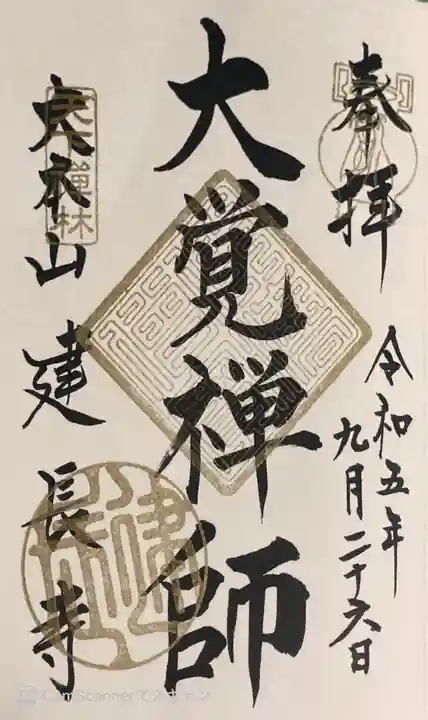 奉拝
令和五年
九月二十六日
大覚禅師
大本山建長寺
天下禅林
CamScannerでスキャン